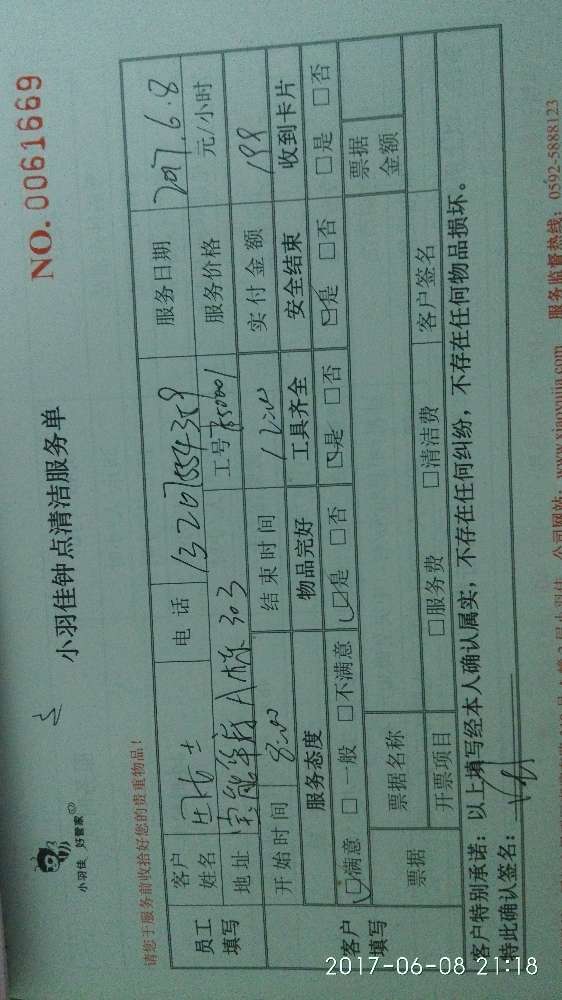 小羽佳 好管家
小羽佳钟点清洁服务单
NO. 0061669
请您于服务前收拾好您的贵重物品！
员工填写 客户姓名 电话 服务日期 2017.6.8
地址 A栋303 工号 服务价格 元/小时
客户填写 开始时间 8:00 结束时间 12:00 实付金额 199
服务态度 物品完好 工具齐全 安全结束 收到卡片
☑满意 □一般 □不满意 ☑是 □否 ☑是 □否 ☑是 □否 □是 □否
票据 票据名称 票据金额
开票项目 □服务费 □清洁费 客户签名
客户特别承诺：以上填写经本人确认属实，不存在任何纠纷，不存在任何物品损坏。
特此确认签名：
公司网站：www.xiaoyujia.com 服务监督热线：0592-5888123
2017-06-08 21:18